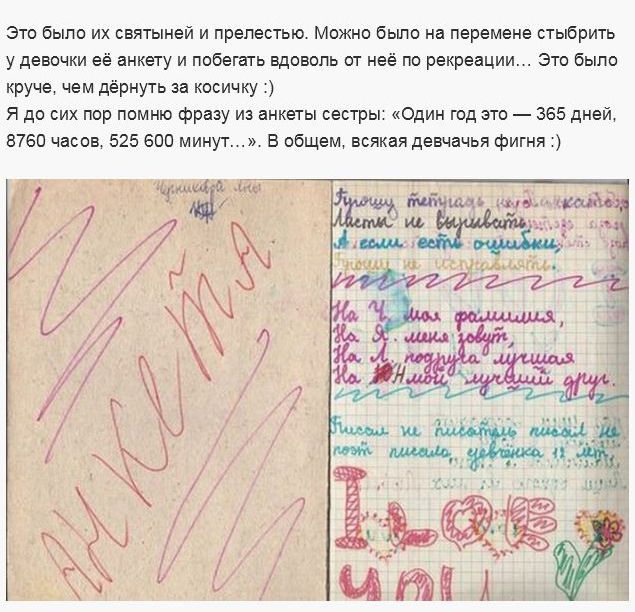 Это было их святыней и прелестью. Можно было на перемене стыбрить
у девочки её анкету и побегать вдоволь от неё по рекреации… Это было
круче, чем дёрнуть за косичку :)
Я до сих пор помню фразу из анкеты сестры: «Один год это — 365 дней,
8760 часов, 525 600 минут…». В общем, всякая девчачья фигня :)
Анкета
Прошу тетрадь не
Ласты не вырывать,
А если есть ошибки,
Прошу не исправлять.
На Ч. моя фамилия,
На Я. меня зовут,
На Л. подруга лучшая
На Н мой лучший друг.
Писал не писатель писал не
поэт писала девчёнка 12 лет.
I LOVE
YOU